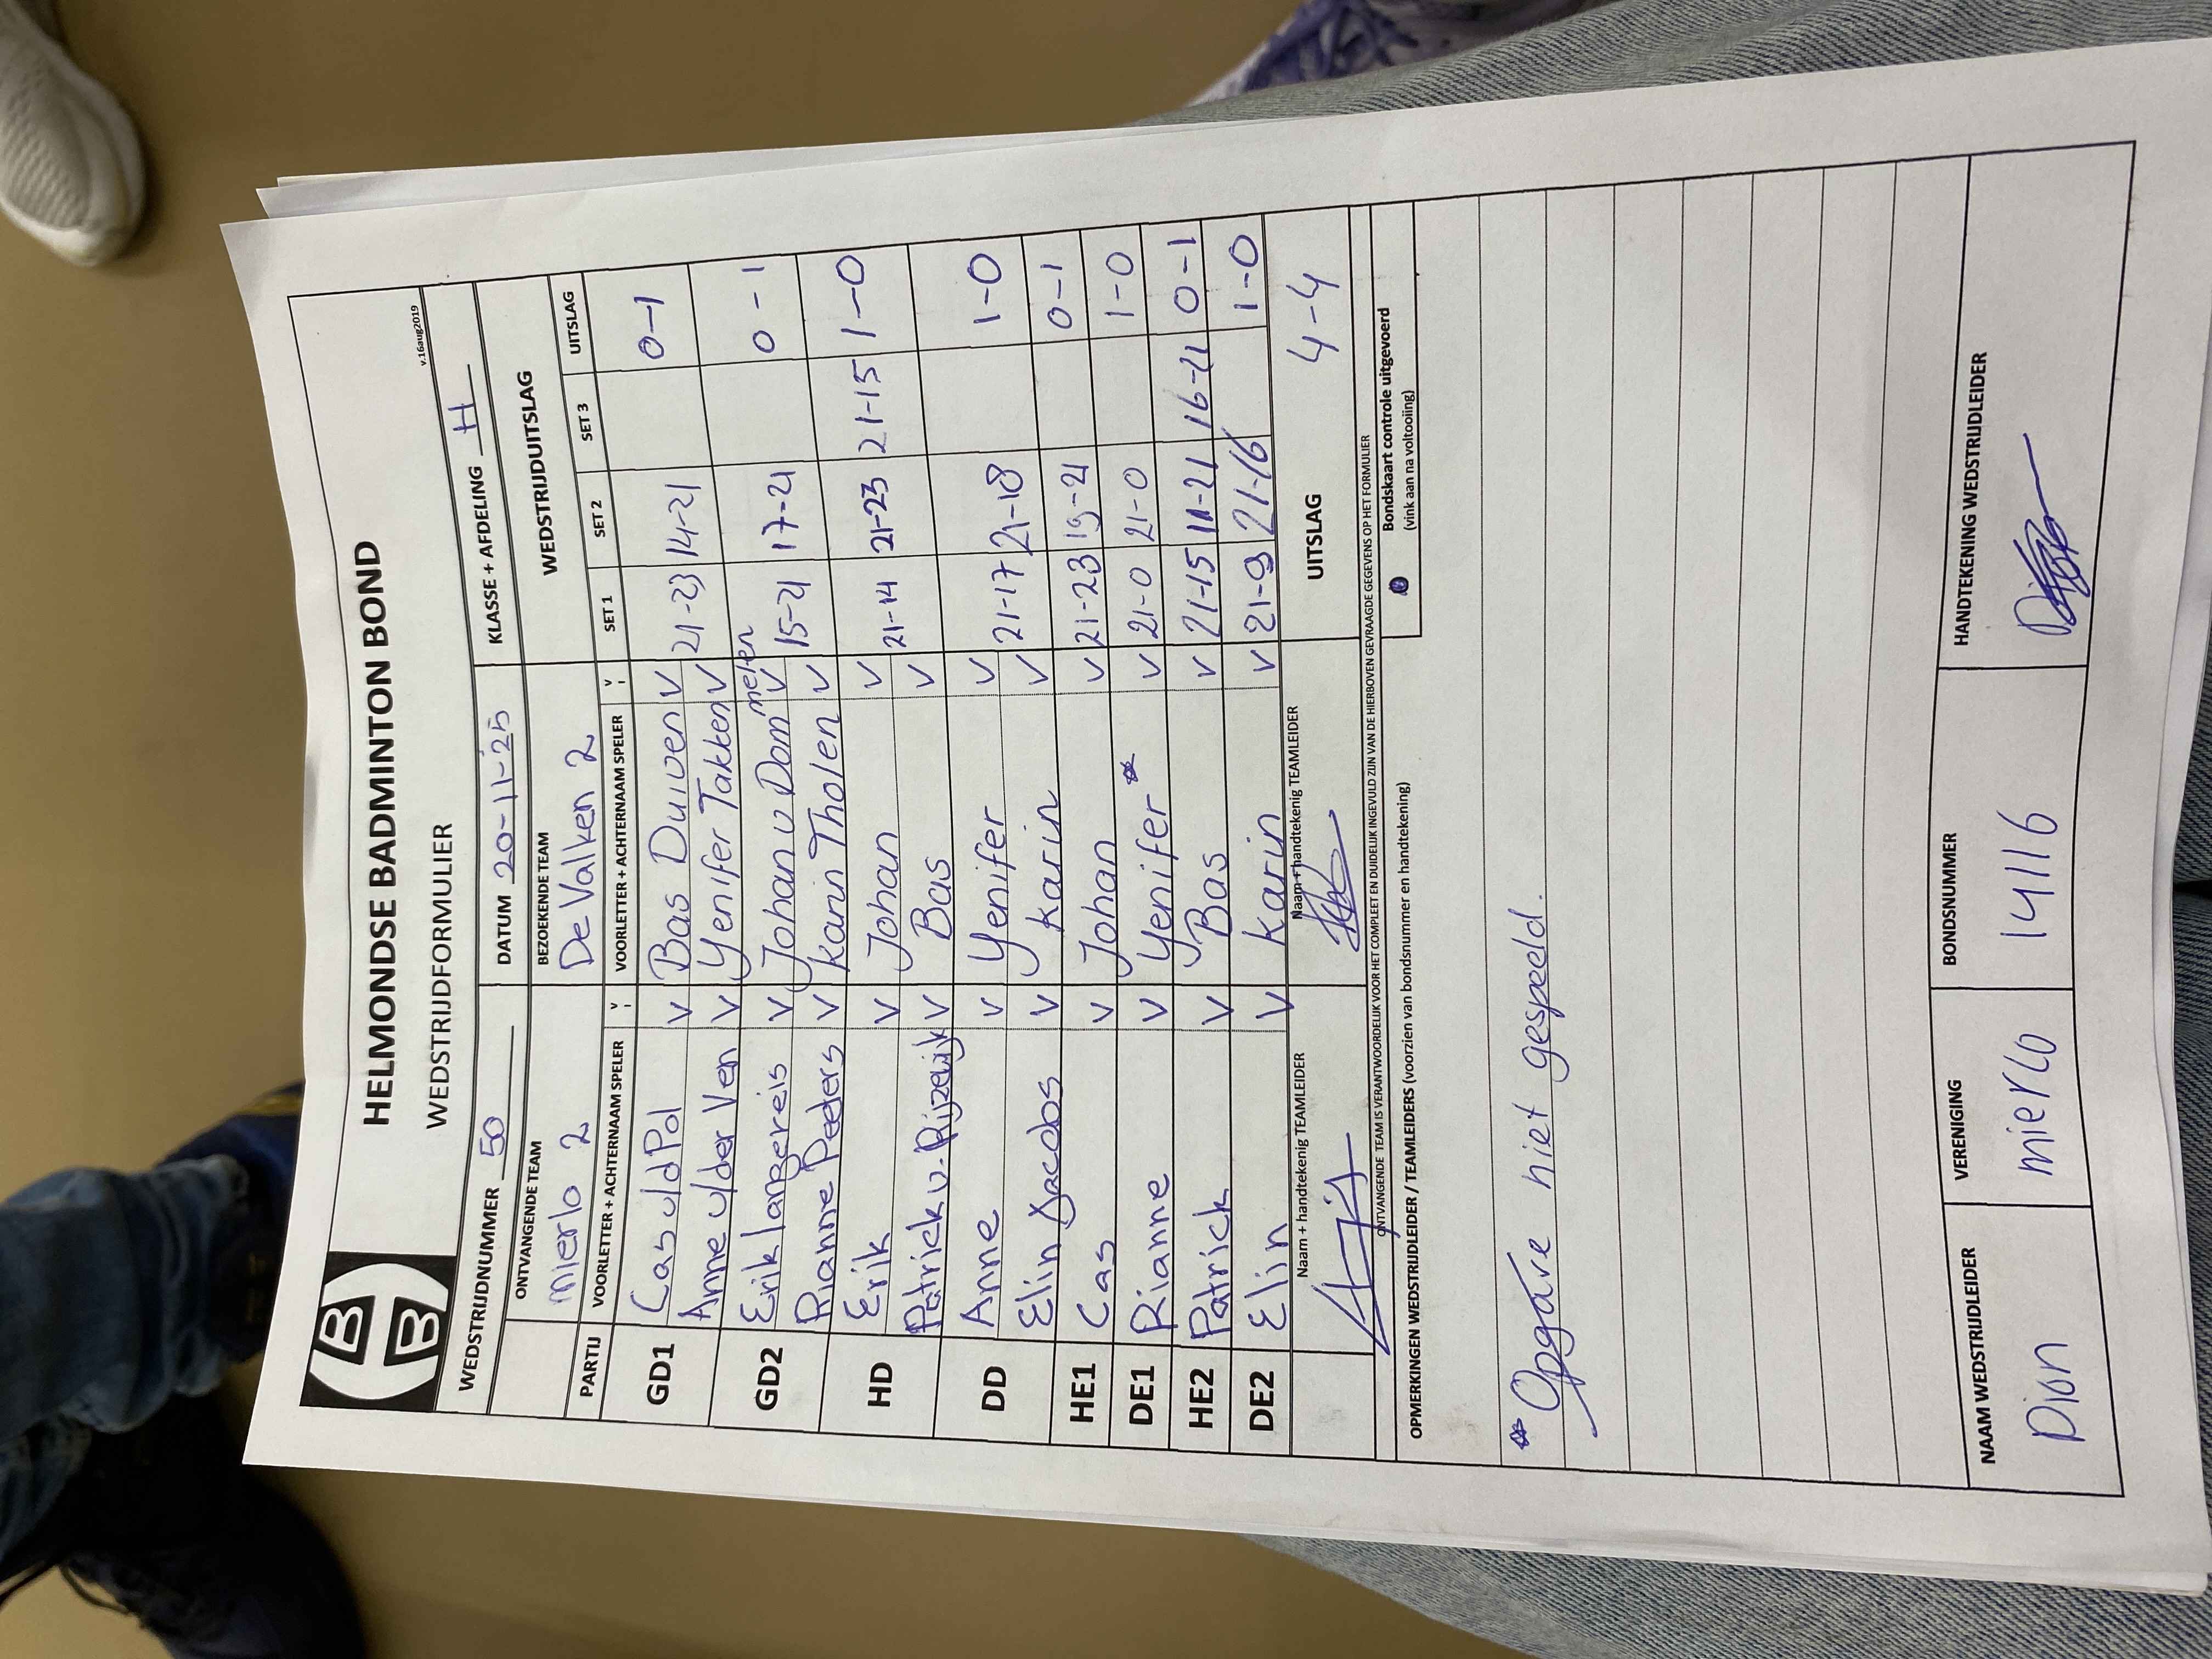 HELMONDSE BADMINTON BOND
WEDSTRIJDFORMULIER
v.16aug2019
WEDSTRIJDNUMMER 50 DATUM 20-11-'25 KLASSE + AFDELING H
ONTVANGENDE TEAM BEZOEKENDE TEAM WEDSTRIJDUITSLAG
mierlo 2 De Valken 2
PARTIJ VOORLETTER + ACHTERNAAM SPELER v VOORLETTER + ACHTERNAAM SPELER v SET 1 SET 2 SET 3 UITSLAG
GD1 Cas v/d Pol v Bas Duiven v 21-23 14-21 0-1
Anne v/der Ven v Yenifer Takken v
GD2 Erik langereis v Johan v Dommelen v 15-21 17-21 0-1
Rianne Peeters v Karin Tholen v
HD Erik v Johan v 21-14 21-23 21-15 1-0
Patrick v. Rijzewijk v Bas v
DD Anne v Yenifer v 21-17 21-18 1-0
Elin Jacobs v Karin v
HE1 Cas v Johan v 21-23 19-21 0-1
DE1 Rianne v Yenifer * v 21-0 21-0 1-0
HE2 Patrick v Bas v 21-15 11-21 16-21 0-1
DE2 Elin v Karin v 21-9 21-16 1-0
Naam + handtekenig TEAMLEIDER Naam + handtekenig TEAMLEIDER UITSLAG 4-4
ONTVANGENDE TEAM IS VERANTWOORDELIJK VOOR HET COMPLEET EN DUIDELIJK INGEVULD ZIJN VAN DE HIERBOVEN GEVRAAGDE GEGEVENS OP HET FORMULIER
OPMERKINGEN WEDSTRIJDLEIDER / TEAMLEIDERS (voorzien van bondsnummer en handtekening)
Bondskaart controle uitgevoerd
(vink aan na voltooiing)
* Opgave niet gespeeld.
NAAM WEDSTRIJDLEIDER VERENIGING BONDSNUMMER HANDTEKENING WEDSTRIJDLEIDER
Dion mierlo 14116